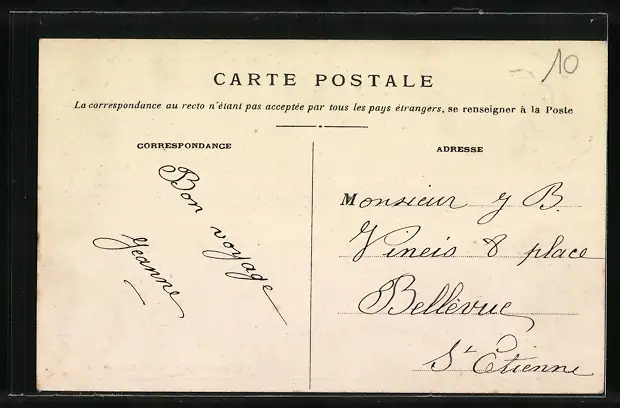 10
CARTE POSTALE
La correspondance au recto n'étant pas acceptée par tous les pays étrangers, se renseigner à la Poste
CORRESPONDANCE
Bon voyage
Jeanne
ADRESSE
Monsieur J B.
Vineis 8 place
Bellevue
St Etienne